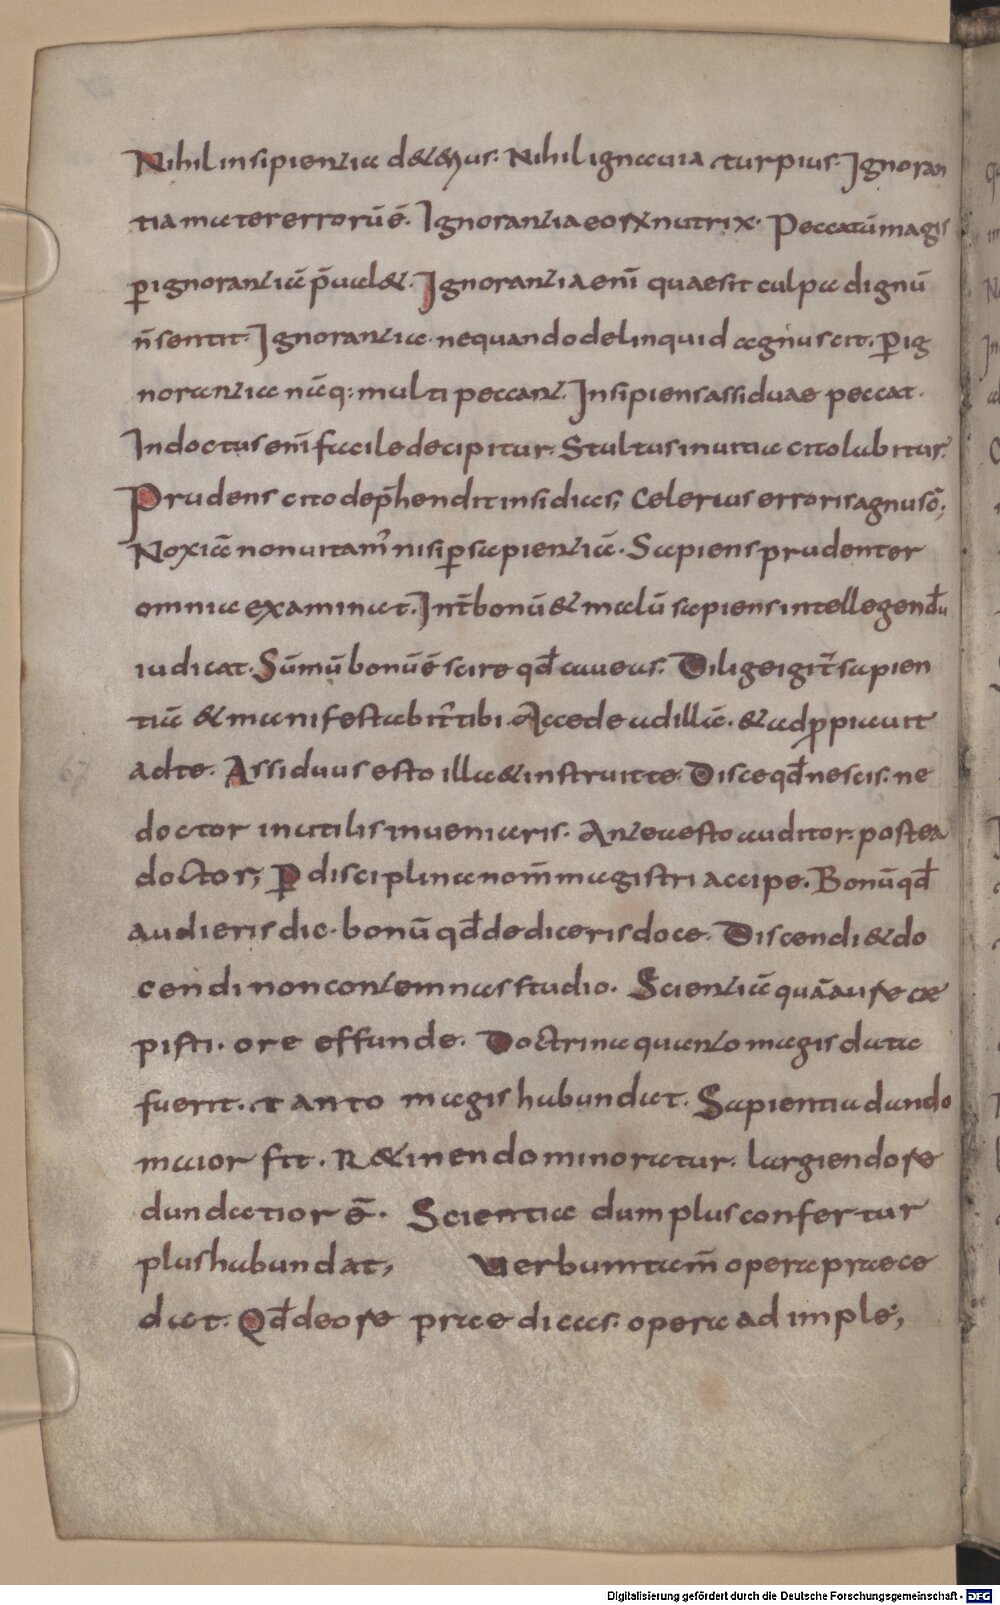 Nihil insipientia det&erius. Nihil ignauia turpius. Ignoran
tia mater errorū ē. Ignorantia eorꝝ nutrix. Peccatū magis
ꝑ ignorantiā p̄ual&. Ignorantia eni̅ quae sit culpa dignū
n̄ sentit. Ignorantia nequando delinquid agnuscit. ꝑ ig
norantia nāq: multi peccant. Insipiens assiduae peccat.
Indoctus eni̅ facile decipitur. Stultus in uitia cito labitur.
Prudens cito dep̄hendit insidias; Celerius erroris agnusc̄;
Noxiā non uitam̄ nisi ꝑ sapientiā. Sapiens prudenter
omnia examinat. Int̄ bonū & malū sapiens intellegendū
iudicat. Sūmū bonū ē scire qd̄ caueas. Dilige igit̄ sapien
tiā & manifestabit̄ tibi. Accede ad illā. & adp̱piauit
ad te. Assiduus esto illa & instruit te. Disce qd̄ nescis. ne
doctor inutilis inueniaris. Antea esto auditor. postea
doctor; ꝑ disciplina nom̄ magistri accipe. Bonū qd̄
audieris dic. bonū qd̄ dediceris doce. Discendi & do
cendi non contemnas studio. Scientiā quā aure cę
pisti. ore effunde. Doctrina quanto magis data
fuerit. tanto magis habundat. Sapientia dando
maior fit. R&inendo minoratur. largiendo re
dundatior ē. Scientia dum plus confertur
plus habundat; Uerbum tam̄ opera praece
dat. Qd̄ de ore praedicas. opera adimple;
Digitalisierung gefördert durch die Deutsche Forschungsgemeinschaft - DFG